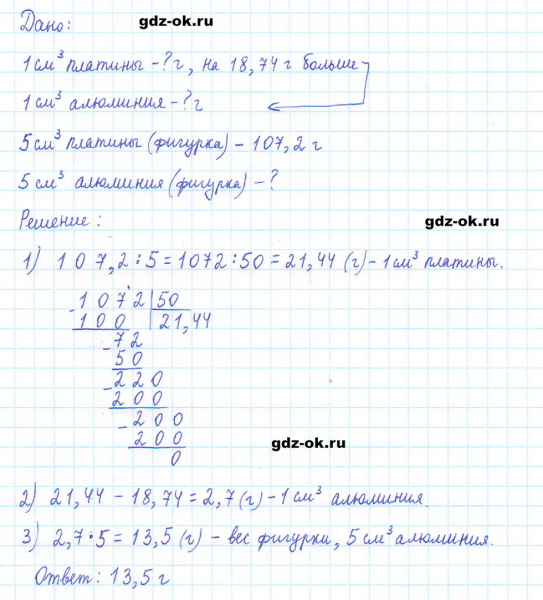 gdz-ok.ru
Дано:
1 см³ платины - ? г, на 18,74 г больше
1 см³ алюминия - ? г
5 см³ платины (фигурка) - 107,2 г
5 см³ алюминия (фигурка) - ?
gdz-ok.ru
Решение:
1) 107,2 : 5 = 1072 : 50 = 21,44 (г) - 1 см³ платины.
- 1072 | 50
100 | 21,44
- 72
50
- 220
200
- 200
200
gdz-ok.ru
0
2) 21,44 - 18,74 = 2,7 (г) - 1 см³ алюминия.
3) 2,7 · 5 = 13,5 (г) - вес фигурки, 5 см³ алюминия.
Ответ: 13,5 г